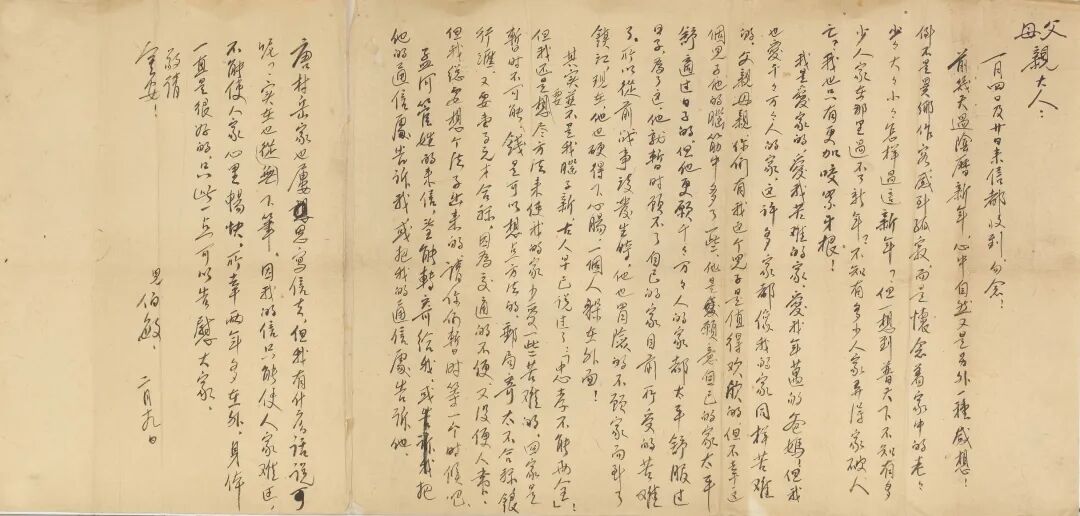 父
母親大人:
一月四日及廿日来信都收到、勿念!
前幾天過陰曆新年,心中自然又是另外一種感想!
倒不是異鄉作客感到孤寂而是懷念着家中的老々
少々大々小々怎樣過這新年?但一想到普天下不知有多
少人家在那里過不了新年?不知有多少人家弄得家破人
亡?我也只有更加咬緊牙根!
我是愛家的,愛我苦難的家,愛我年邁的爸媽!但我
也愛千々万々人的家,这许多家都像我的家同样苦难
的,父親母親你们有我这个児子是值得欢欣的,但不幸这
個児子他的腦筋中多了一些、他是願意自己的家太平
舒適过日子的,但他更願千々万々人的家都太平舒服过
日子,為了这,他就暫时顾不了自己的家目前所受的苦难
了,所以從前战事没發生時,他也冒險的不顾家而到了
鎮江,現在,他也硬得下心腸,一個人躲在外面!
其实並不是我腦子新,古人早已説过了,「忠孝不能两全」
但我还是想要尽方法来使我的家少受一些苦难的,回家是
暫时不可能,錢是可以想点方法的,郵局寄太不合称,銀
行滙,又要壹千元才合称,因为交通的不便,又没便人带,
但我总要想个法子出来的,請你们暫时等一个时候吧,
孟河管姓的来信,望能轉寄给我,或告訴我把
他的通信處告訴我,或把我的通信處告訴他.
唐村岳家也屢思寫信去,但我有什么話說可
呢?实在也從無下筆,因我的信只能使人家难过,
不能使人家心里暢快,所幸两年多在外,身体
一直是很好的,只此一点可以告慰大家,
敬請
金安!
児伯敏、二月九日